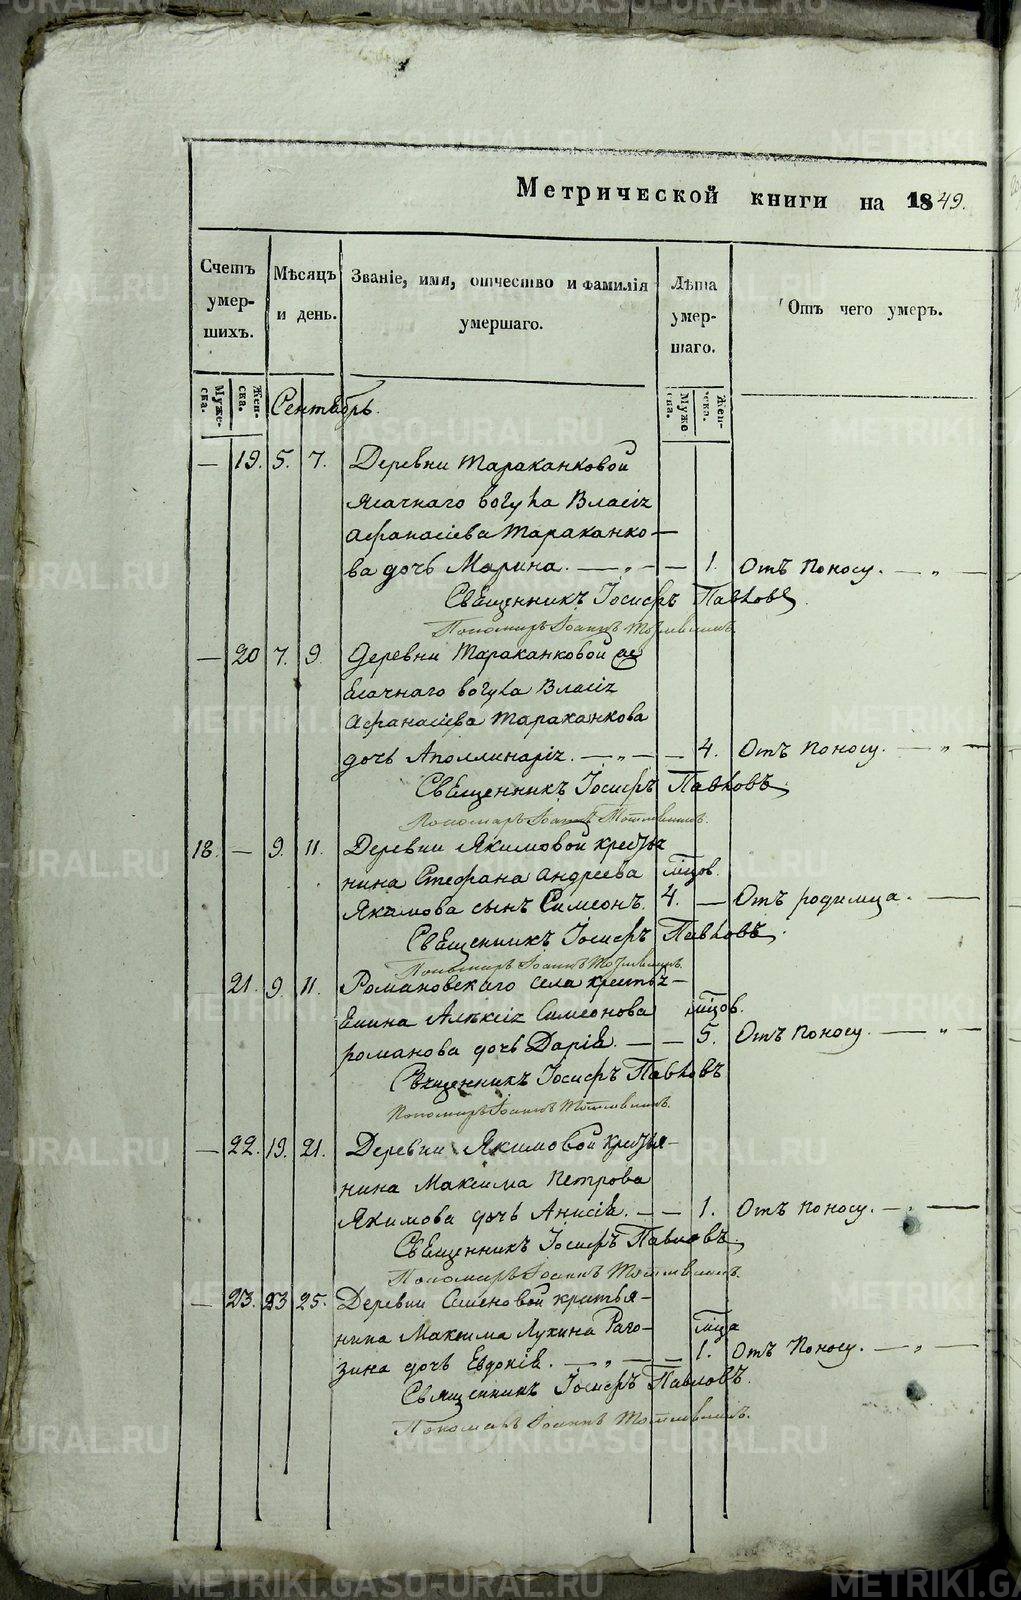 Метрической книги на 1849.
Счетъ умер-шихъ.
Мѣсяцъ и день.
Званіе, имя, отчество и фамилія умершаго.
Лѣта умер-шаго.
Отъ чего умеръ.
Муже-ска.
Жен-ска.
Муже-ска.
Жен-ска.
Сентябрь.
— 19. 5. 7. Деревни Тараканковой
Ясачнаго вогула Власія
Афанасіева Тараканко—
ва дочь Марина. — „ — — 1. Отъ поносу. — „ —
Священникъ Іосифъ Павловъ.
Пономарь Іоаннъ
— 20 7. 9. Деревни Тараканковой
ясачнаго вогула Власія
Афанасіева Тараканкова
дочь Аполлинарія. — „ — — 4. Отъ поносу. — „ —
Священникъ Іосифъ Павловъ.
Пономарь Іоаннъ
18. — 9. 11. Деревни Якимовой кресть
янина Стефана Андреева мѣцов.
Якимова сынъ Симеонъ. 4. — Отъ родимца. —
Священникъ Іосифъ Павловъ.
Пономарь Іоаннъ
21. 9. 11. Романовскаго села кресть—
янина Алексія Симеонова мѣцов.
романова дочь Дарія. — — 5. Отъ поносу. — „ —
Священникъ Іосифъ Павловъ
Пономарь Іоаннъ
— 22. 19. 21. Деревни Якимовой крестья—
нина Максима Петрова
Якимова дочь Анисія. — — 1. Отъ поносу. — „ —
Священникъ Іосифъ Павловъ.
Пономарь Іоаннъ
— 23. 23 25. Деревни Семеновой крестья—
нина Максима Лукина Раго— мѣца
зина дочь Евдокія. — „ — — 1. Отъ поносу. — „ —
Священникъ Іосифъ Павловъ.
Пономарь Іоаннъ
METRIKI.GASO-URAL.RU